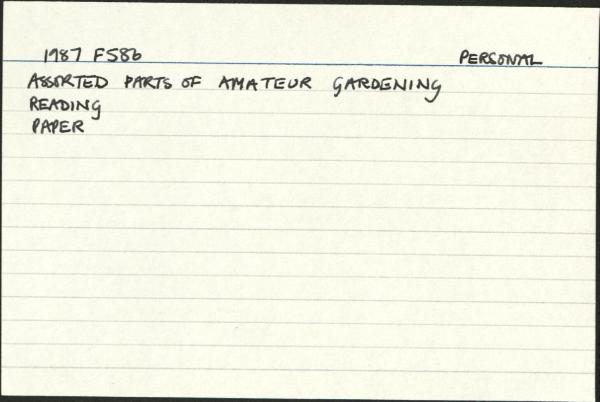 1987 F586 PERSONAL
ASSORTED PARTS OF AMATEUR GARDENING
READING
PAPER